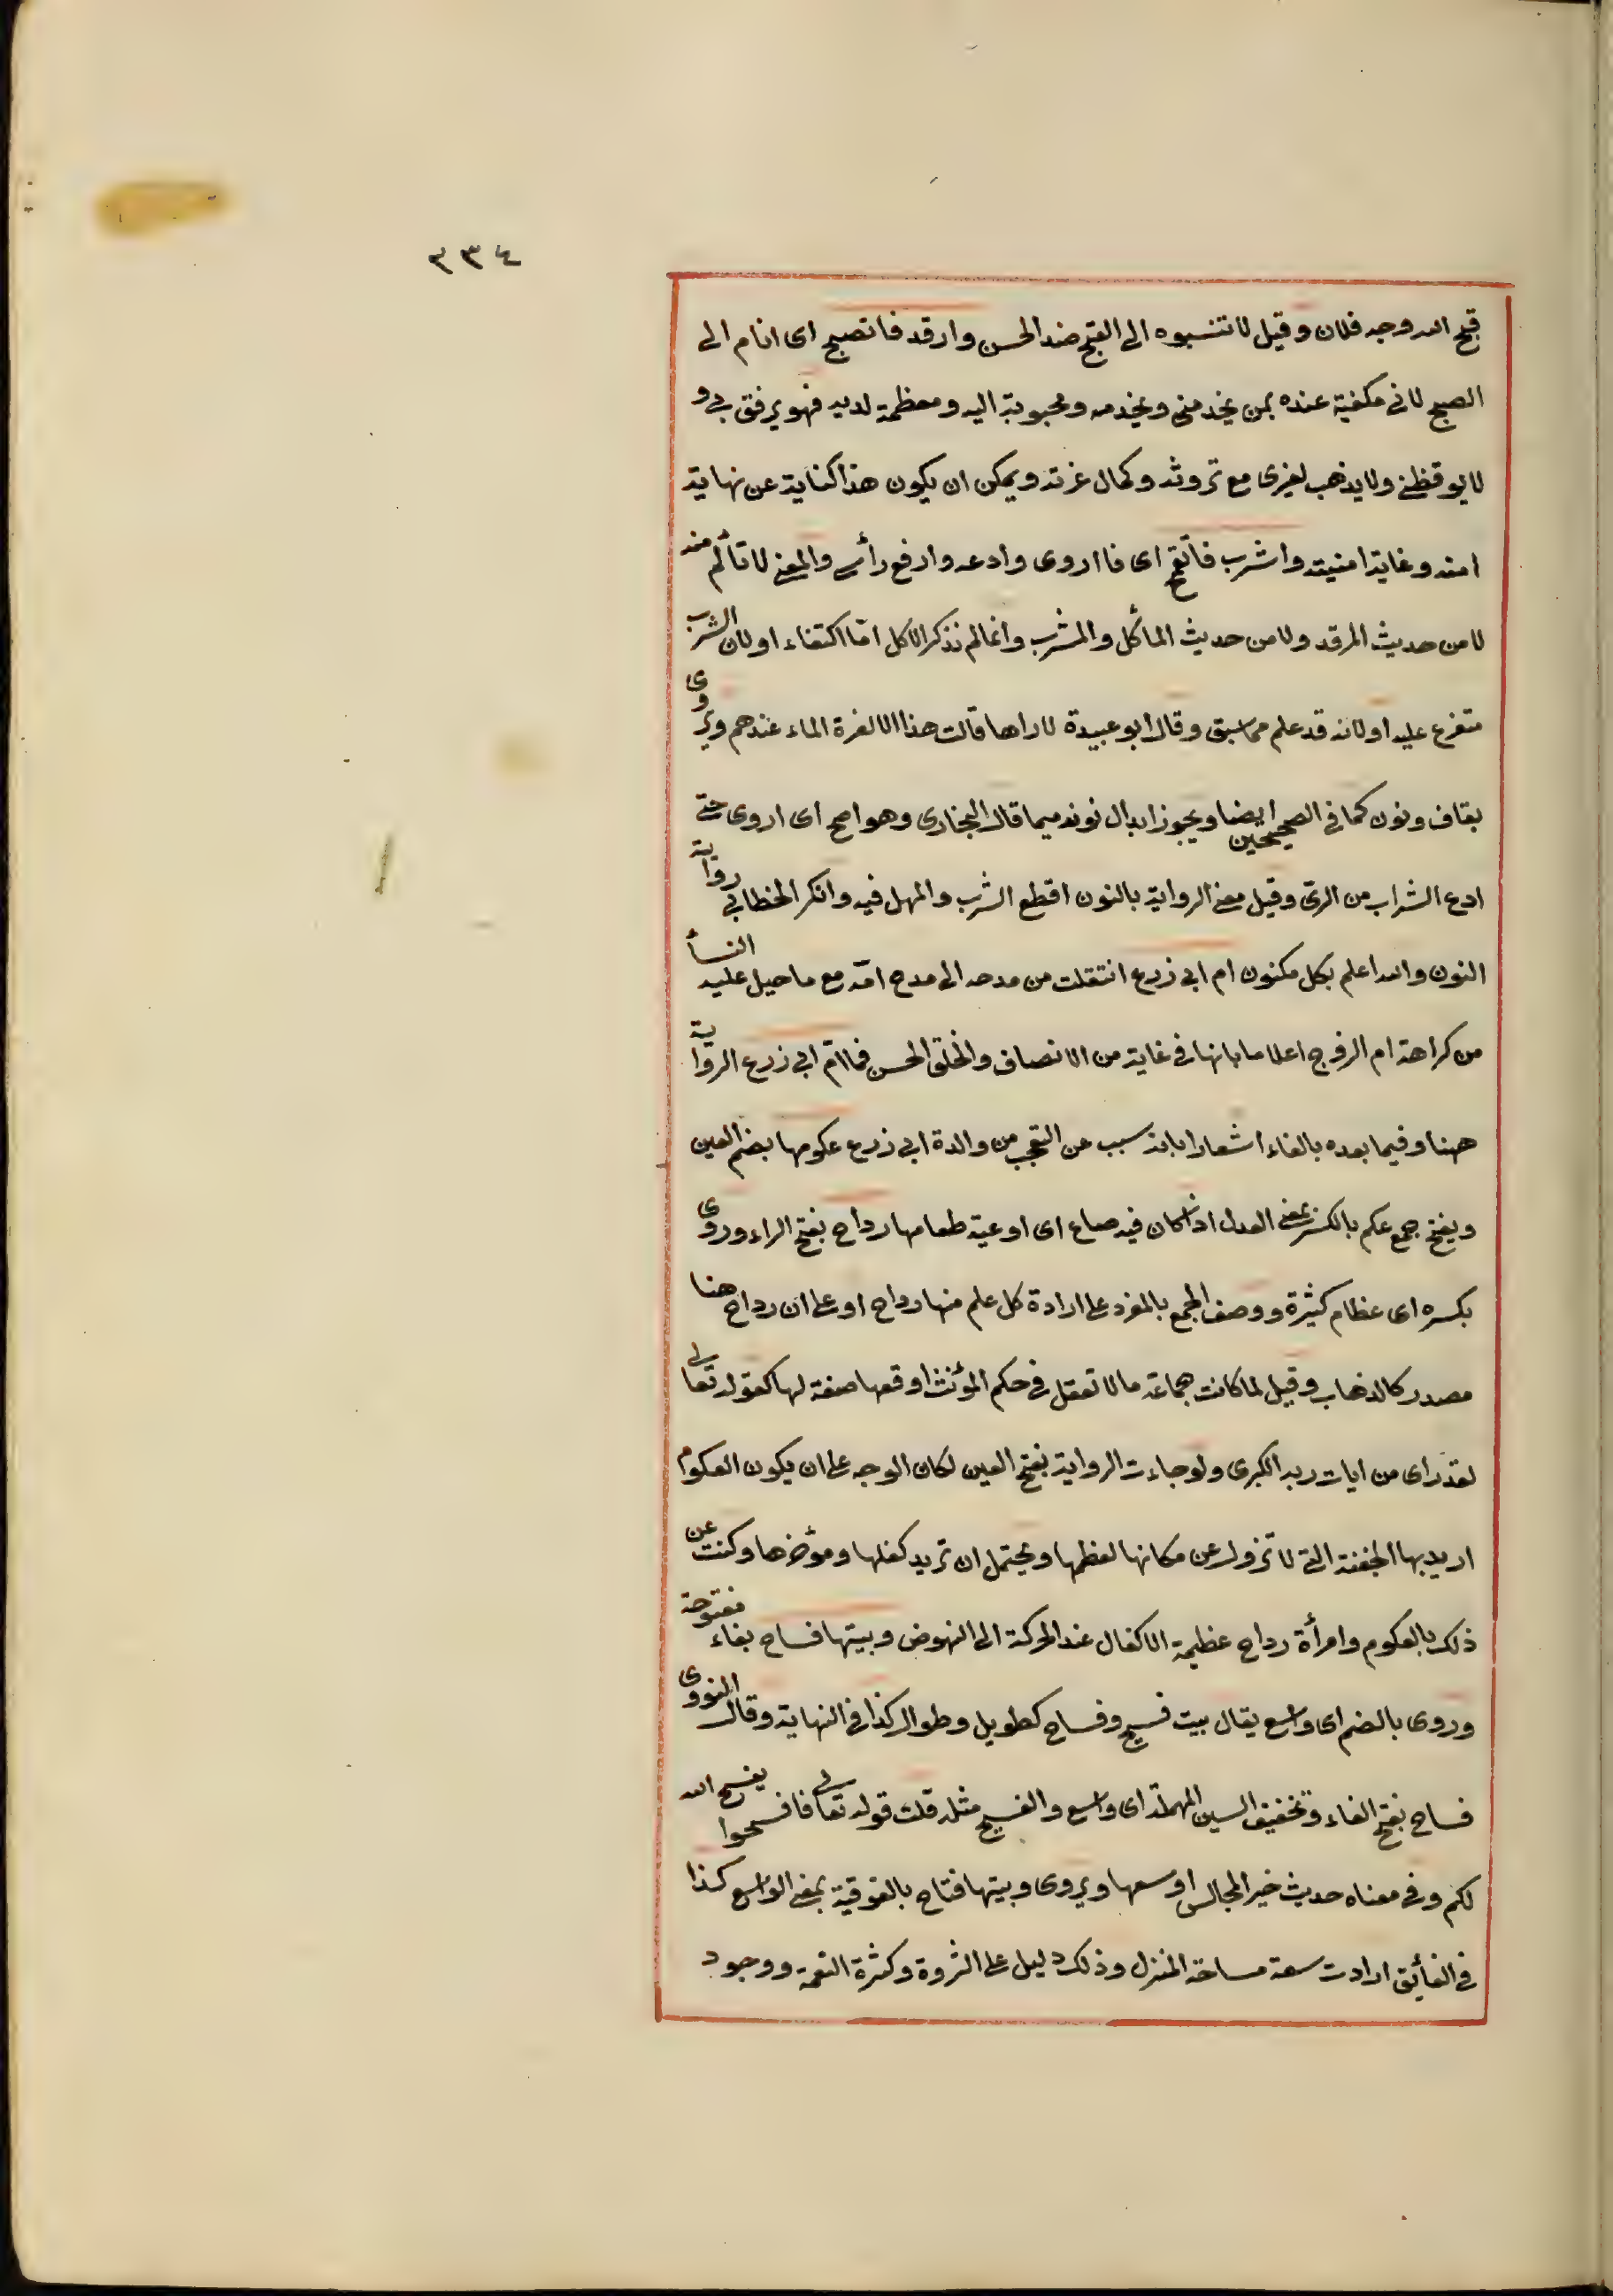 ٣٣٤
قبح الله وجه فلان وقيل لا تنسبوه الى القبح ضد الحسن وارقد فاتصبح اى انام الى
الصبح لانى مكفية عنده بمن يخدمنى ويخدمه ومحبوبة اليه ومعظمة لديه فهو يرفق بى و
لا يوقظنى ولا يذهب لغيرى مع ثروته وكمال عزته ويمكن ان يكون هذا كناية عن نهاية
امنه وغاية امنيته واشرب فاتقمح اى فااروى وادعه وارفع رأسى والمعنى لا تألم منه
لا من حديث المرقد ولا من حديث المأكل والمشرب وانما لم تذكر الاكل امّا اكتفاء او لان الشرب
متفرع عليه او لانه قد علم مما سبق وقال ابو عبيدة لا اراها قالت هذا الا لعزة الماء عندهم ويروى
بقاف ونون كما فى الصحيحين ايضا ويجوز ابدال نونه ميما قال البخارى وهو اصح اى اروى حتى
ادع الشراب من الرى وقيل معنى الرواية بالنون اقطع الشرب والمهل فيه وانكر الخطابى رواية
النون والله اعلم بكل مكنون ام ابى زرع انتقلت من مدحه الى مدح امّه مع ما حبل عليه النسأ
من كراهة ام الزوج اعلاما بانها فى غاية من الانصاف والخلق الحسن فما امّ ابى زرع الرواية
ههنا وفيما بعده بالفاء اشعارا بانه سبب عن التعجب من والدة ابى زرع عكومها بضم العين
ويفتح جمع عكم بالكسر بمعنى العدل اذا كان فيه صاع اى اوعية طعامها رداح بفتح الراء وروى
بكسره اى عظام كثيرة ووصف الجمع بالمفرد على ارادة كل علم منها رداح او على ان رداح هنا
مصدر كالذهاب وقيل لما كانت جماعة ما لا تعقل فى حكم المؤنث اوقعها صفة لها كقوله تعالى
لقد راى من ايات ربه الكبرى ولو جاءت الرواية بفتح العين لكان الوجه على ان يكون العكوم
اريد بها الجفنة التى لا تزول عن مكانها لعظمها ويحتمل ان تريد كفلها ومؤخرها وكنت عن
ذلك بالعكوم وامرأة رداح عظيمة الاكفال عند الحركة الى النهوض وبيتها فساح بفاء مفتوحة
وروى بالضم اى واسع يقال بيت فسيح وفساح كطويل وطوال كذا فى النهاية وقال النووى
فساح بفتح الفاء وتخفيف السين المهملة اى واسع والفسيح مثله قلت قوله تعالى فافسحوا يفسح الله
لكم وفى معناه حديث خير المجالس اوسعها ويروى وبيتها فتاح بالفوقية بمعنى الواسع كذا
فى الفائق ارادت سعة مساحة المنزل وذلك دليل على الثروة وكثرة النعمة ووجود